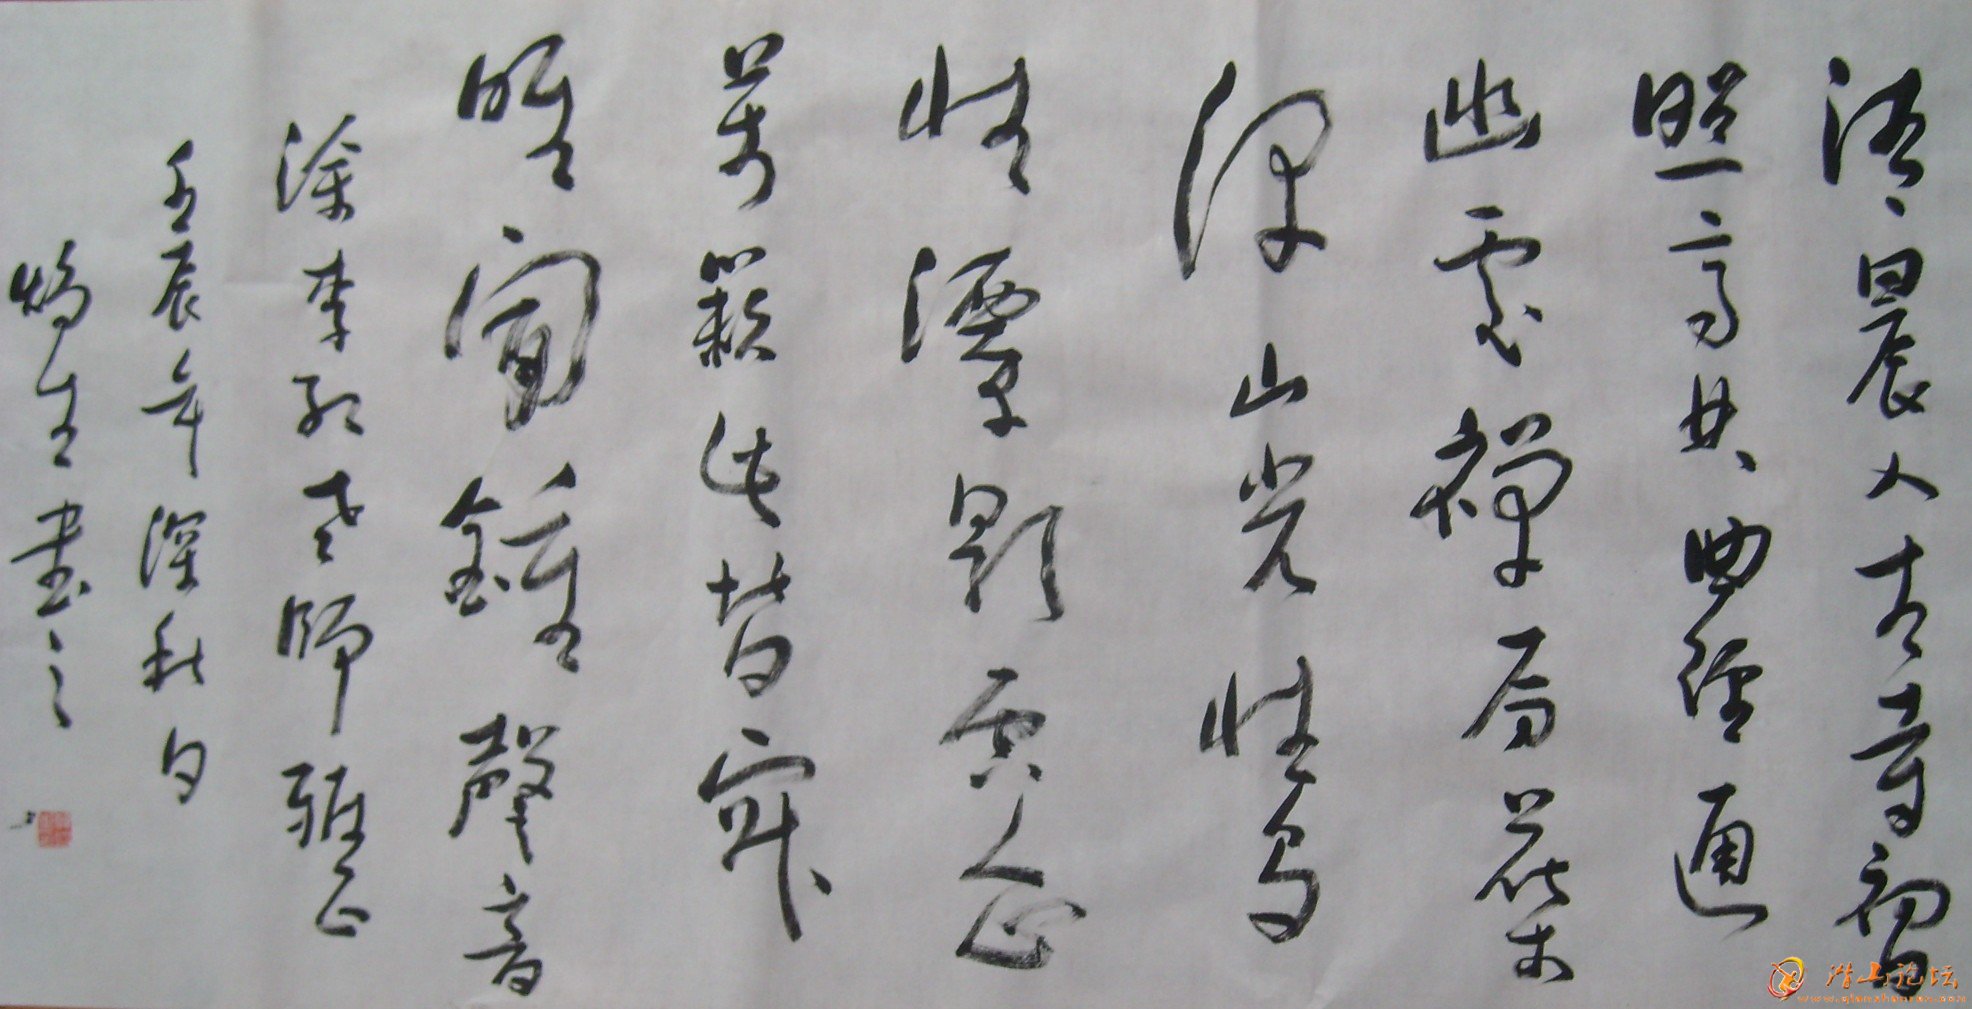 清晨入古寺初日
照高林曲徑通
幽處禪房花木
深山光悅鳥
性潭影空人心
萬籟此皆寂
唯聞鐘磬音
涂李老師雅正
壬辰年深秋月
生書之
潜山论坛